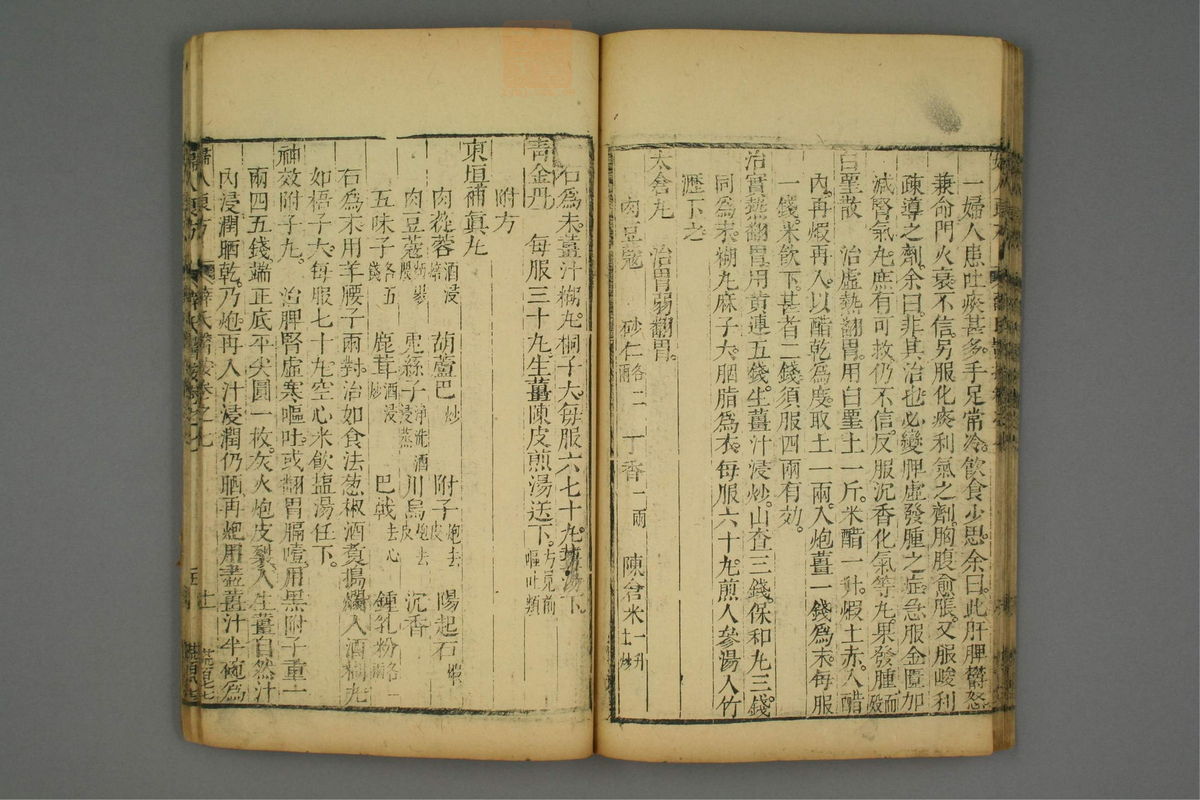 一婦人患吐痰甚多。手足常冷。飲食少思。余曰。此肝脾鬱怒
兼命門火衰不信。另服化痰利氣之劑。胸腹愈脹。又服峻利
疎導之劑。余曰。非其治也。必變脾虛發腫之症。急服金匱加
減腎氣丸庶有可救。仍不信。反服沉香化氣等丸。果發腫而歿
白堊散 治虛熱翻胃。用白堊土一斤。米醋一升。煆土赤。入醋
內。再煆再入。以醋乾為度。取土一兩。入炮薑一錢為末。每服
一錢。米飲下。甚者二錢須服四兩有効。
治實熱翻胃。用黃連五錢。生薑汁浸炒。山查三錢。保和丸三錢
同為末。糊丸麻子大。胭脂為衣。每服六十丸。煎人參湯入竹
瀝下之
太倉丸 治胃弱翻胃。
肉豆蔻 砂仁各二兩 丁香一兩 陳倉米一升土炒
右為末。薑汁糊丸。桐子大。每服六七十丸。湯下
青金丹 每服三十丸。生薑陳皮煎湯送下。方見前嘔吐類
附方
東垣補真丸
肉蓯蓉酒浸焙 葫蘆巴炒 附子炮去皮 陽起石煆
肉豆蔻 菟絲子淨洗酒浸蒸 川烏炮去皮 沉香
五味子各五錢 鹿茸酒浸炒 巴戟去心 鍾乳粉各一兩
右為末用羊腰子兩對。治如食法葱椒酒煑搗爛入酒糊丸
如梧子大。每服七十丸。空心米飲塩湯任下。
神效附子丸。 治脾腎虛寒嘔吐。或翻胃膈噎。用黑附子重一
兩四五錢。端正底平尖圓一枚。灰火炮皮裂。入生薑自然汁
內浸潤。晒乾。乃炮。再入汁浸潤仍晒再炮。用盡薑汁半碗為
婦人良方 薛氏醫按卷之七